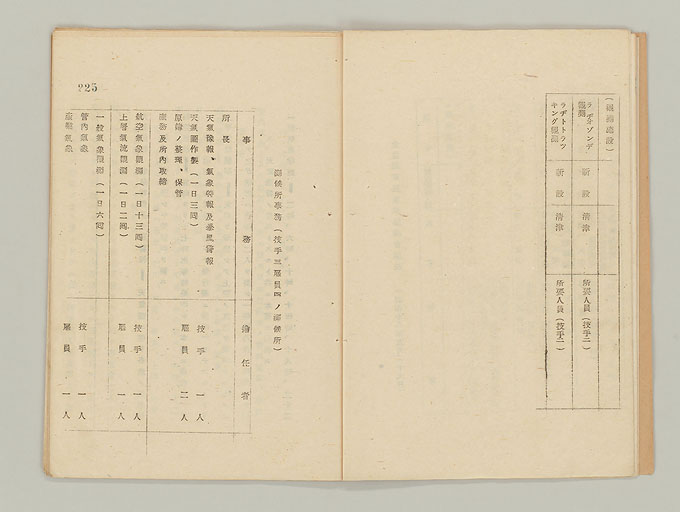 (觀測施設)
ラヂオゾンデ觀測 新設 淸津 所要人員(技手二)
ラヂオトラツキング觀測 新設 淸津 所要人員(技手二)
測候所事務(技手三雇員四ノ測候所)
事務 擔任者
所長
天氣豫報、氣象特報及暴風警報 技手 一人
天氣圖作製(一日三囘) 雇員 二人
原簿ノ整理、保管
庶務及所內取締
航空氣象觀測(一日十三囘) 技手 一人
上層氣流觀測(一日二囘) 雇員 一人
一般氣象觀測(一日六囘)
管內氣象 技手 一人
產業氣象 雇員 一人
225